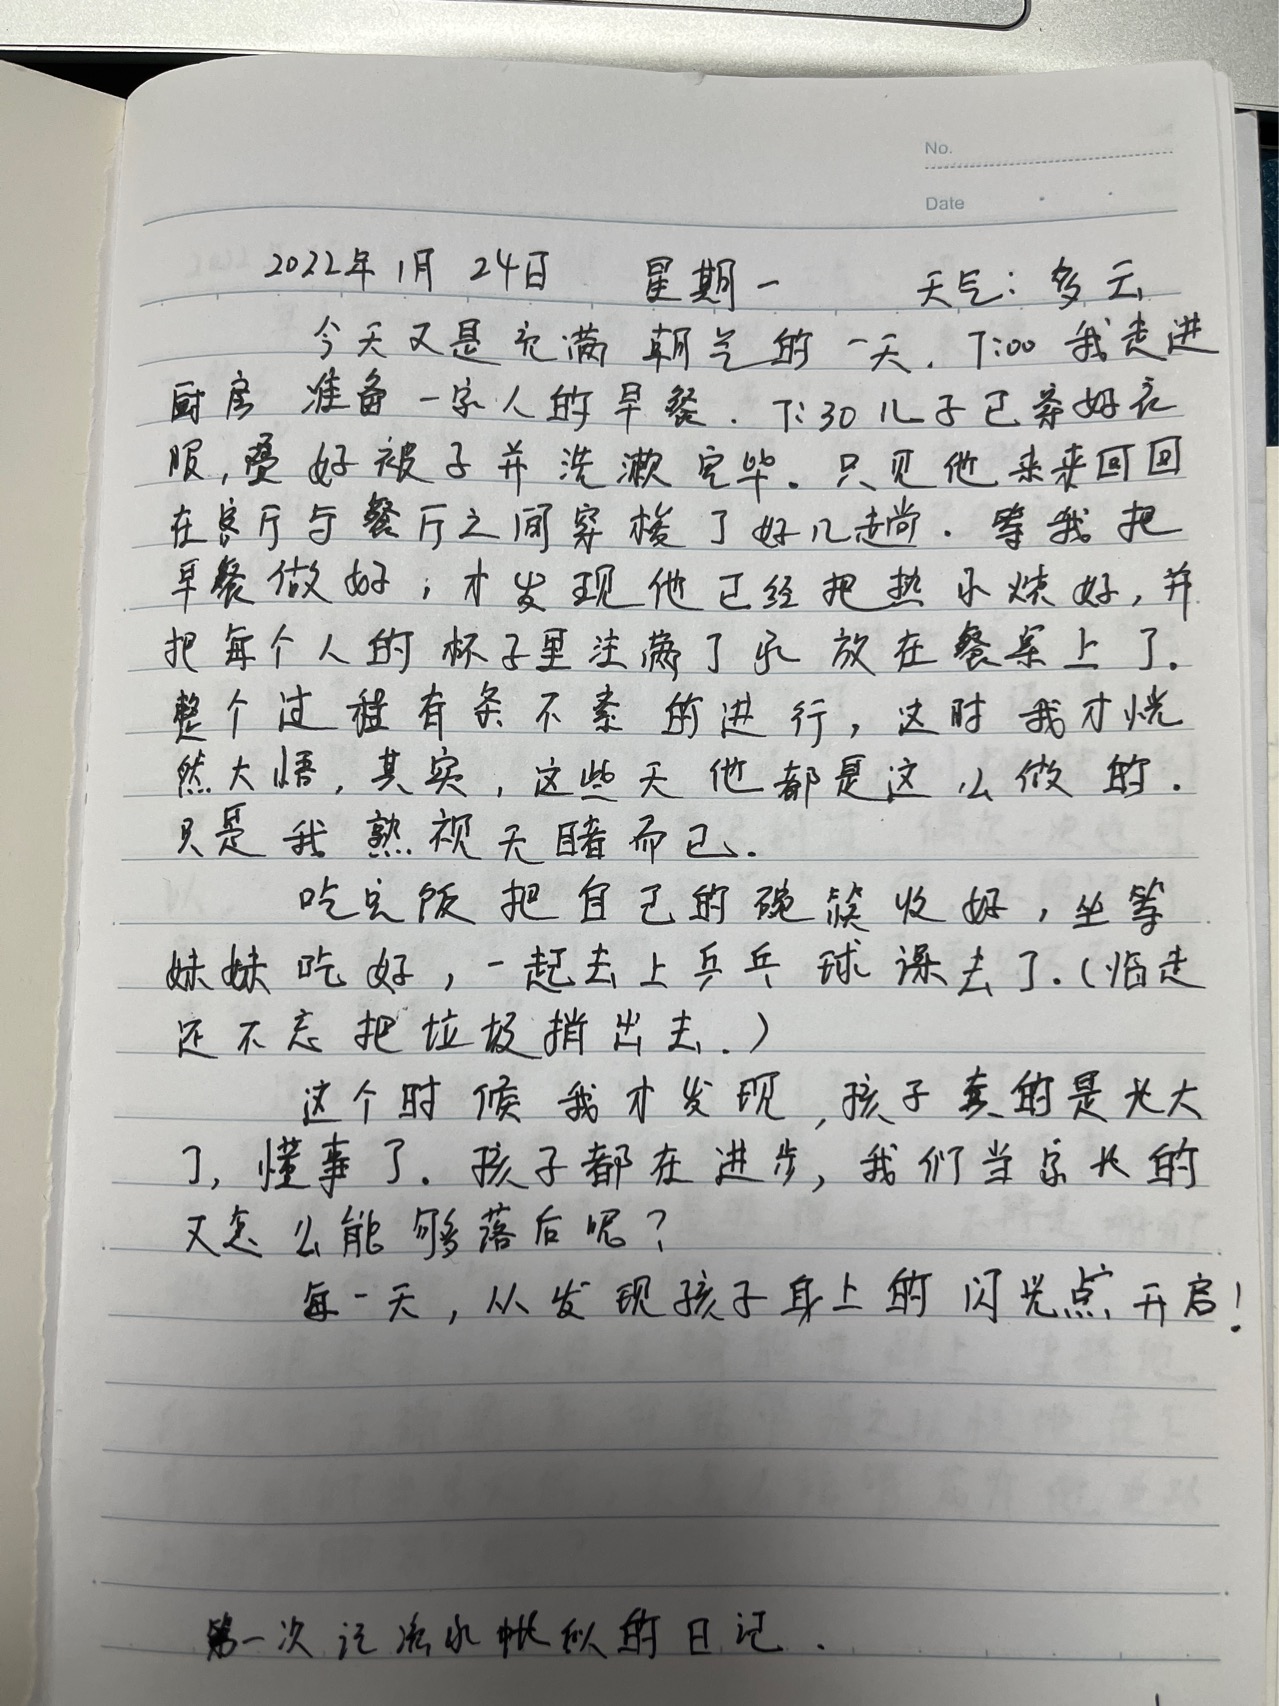 No.
Date
2022年1月24日 星期一 天气：多云
今天又是充满朝气的一天. 7:00 我走进
厨房 准备一家人的早餐. 7:30儿子已穿好衣
服,叠好被子并洗漱完毕。只见他来来回回
在客厅与餐厅之间穿梭了好几趟. 等我把
早餐做好，才发现他已经把热水烧好,并
把每个人的杯子里注满了水放在餐桌上了.
整个过程有条不紊的进行,这时我才恍
然大悟,其实,这些天他都是这么做的.
只是我熟视无睹而已.
吃完饭把自己的碗筷收好,坐等
妹妹吃好,一起去上乒乓球课去了.(临走
还不忘把垃圾捎出去.)
这个时候我才发现,孩子真的是长大
了,懂事了.孩子都在进步,我们当家长的
又怎么能够落后呢?
每一天,从发现孩子身上的闪光点开启!
第一次记流水帐似的日记.